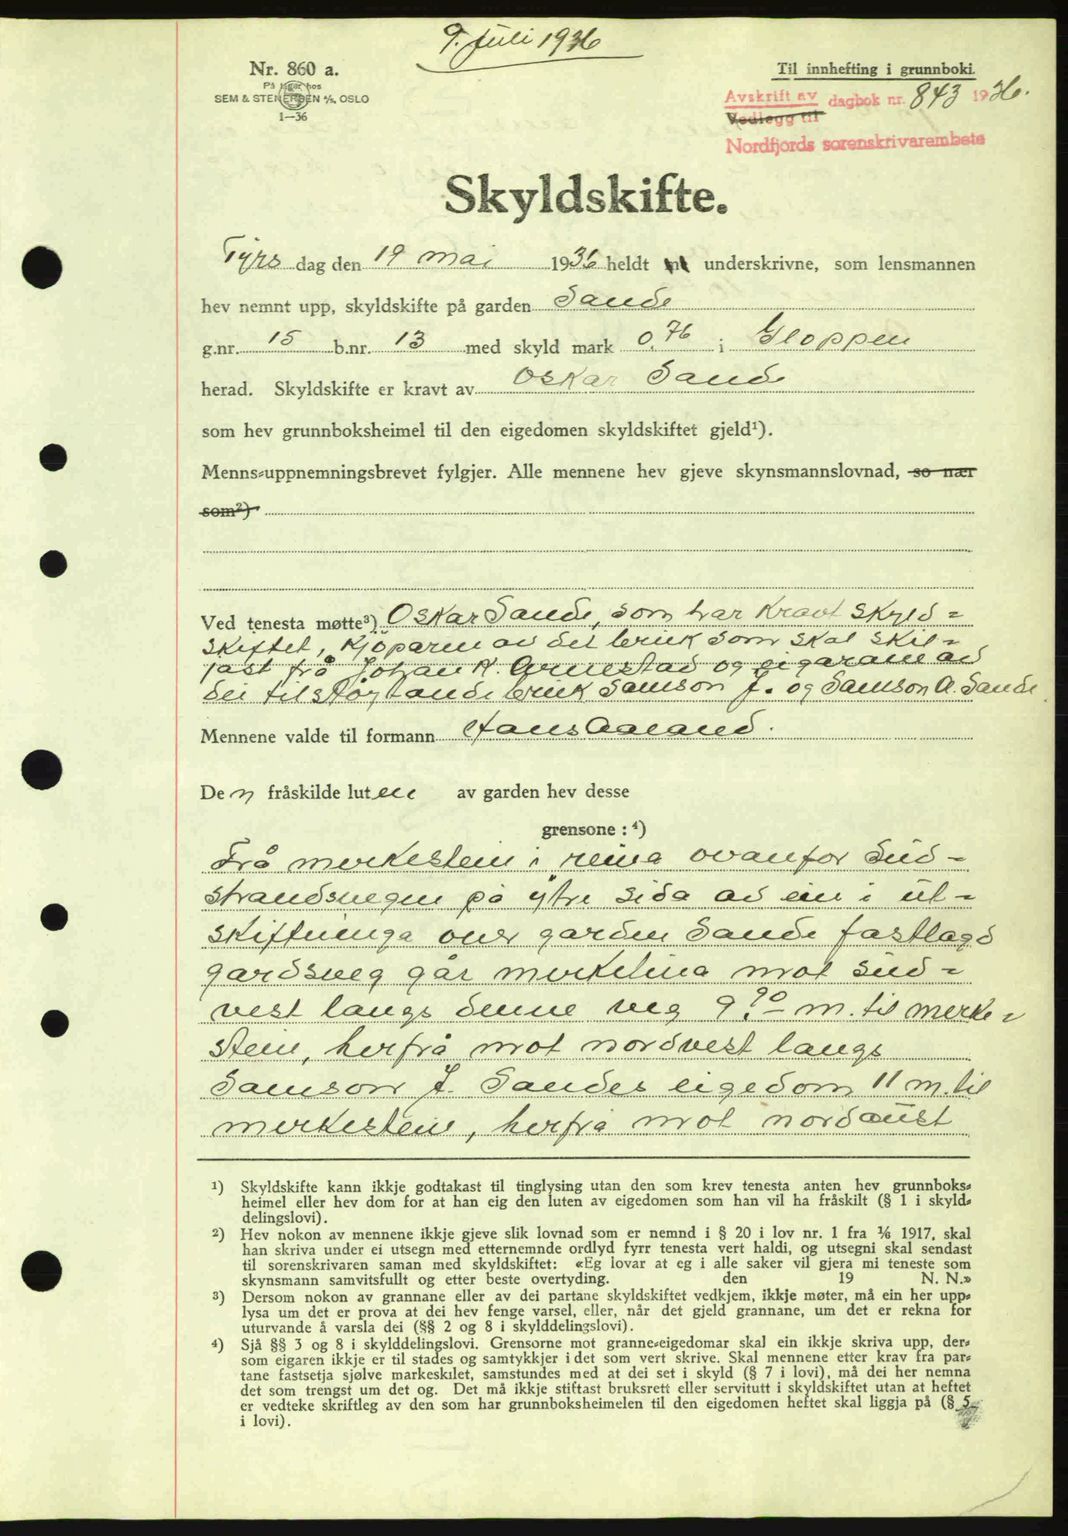 9. juli 1936
Nr. 860 a.
På lager hos
SEM & STENERSEN A/S, OSLO
1—36
Til innhefting i grunnboki.
Avskrift av dagbok nr. 843 1936.
Vedlegg til
Nordfjords sorenskrivarembete
Skyldskifte.
Tyrs dag den 19 mai 1936 heldt underskrivne, som lensmannen
hev nemnt upp, skyldskifte på garden Sande
g.nr. 15 b.nr. 13 med skyld mark 0,76 i Gloppen
herad. Skyldskifte er kravt av Oskar Sande
som hev grunnboksheimel til den eigedomen skyldskiftet gjeld¹).
Menns-uppnemningsbrevet fylgjer. Alle mennene hev gjeve skynsmannslovnad, so nær
som²)
Ved tenesta møtte³) Oskar Sande, som har kravt skyld=
skiftet, kjöparen av det bruk som skal skil=
jast frå Johan K. Arnestad og eigarane av
dei tilstøytande bruk Samson J. og Samson A. Sande
Mennene valde til formann Hans Aaland.
Den fråskilde luten av garden hev desse
grensone : ⁴)
Frå merkestein i reina ovanfor Sud=
strandsvegen på ytre sida av ein i ut=
skiftninga over garden Sande fastlagd
gardsveg går merkelina mot sud=
vest langs denne veg 9.90 m. til merke=
stein, herfrå mot nordvest langs
Samson J. Sandes eigedom 11 m. til
merkestein, herfrå mot nordaust
¹) Skyldskifte kann ikkje godtakast til tinglysing utan den som krev tenesta anten hev grunnboks-
heimel eller hev dom for at han eig den luten av eigedomen som han vil ha fråskilt (§ 1 i skyld-
delingslovi).
²) Hev nokon av mennene ikkje gjeve slik lovnad som er nemnd i § 20 i lov nr. 1 fra 1/6 1917, skal
han skriva under ei utsegn med etternemnde ordlyd fyrr tenesta vert haldi, og utsegni skal sendast
til sorenskrivaren saman med skyldskiftet: «Eg lovar at eg i alle saker vil gjera mi teneste som
skynsmann samvitsfullt og etter beste overtyding. den 19 N. N.»
³) Dersom nokon av grannane eller av dei partane skyldskiftet vedkjem, ikkje møter, må ein her upp-
lysa um det er prova at dei hev fenge varsel, eller, når det gjeld grannane, um det er rekna for
uturvande å varsla dei (§§ 2 og 8 i skylddelingslovi).
⁴) Sjå §§ 3 og 8 i skylddelingslovi. Grensorne mot granne-eigedomar skal ein ikkje skriva upp, der-
som eigaren ikkje er til stades og samtykkjer i det som vert skrive. Skal mennene etter krav fra par-
tane fastsetja sjølve markeskilet, samstundes med at dei set i skyld (§ 7 i lovi), må dei her nemna
det som trengst um det og. Det må ikkje stiftast bruksrett eller servitutt i skyldskiftet utan at heftet
er vedteke skriftleg av den som har grunnboksheimelen til den eigedomen heftet skal liggja på (§ 5
i lovi).